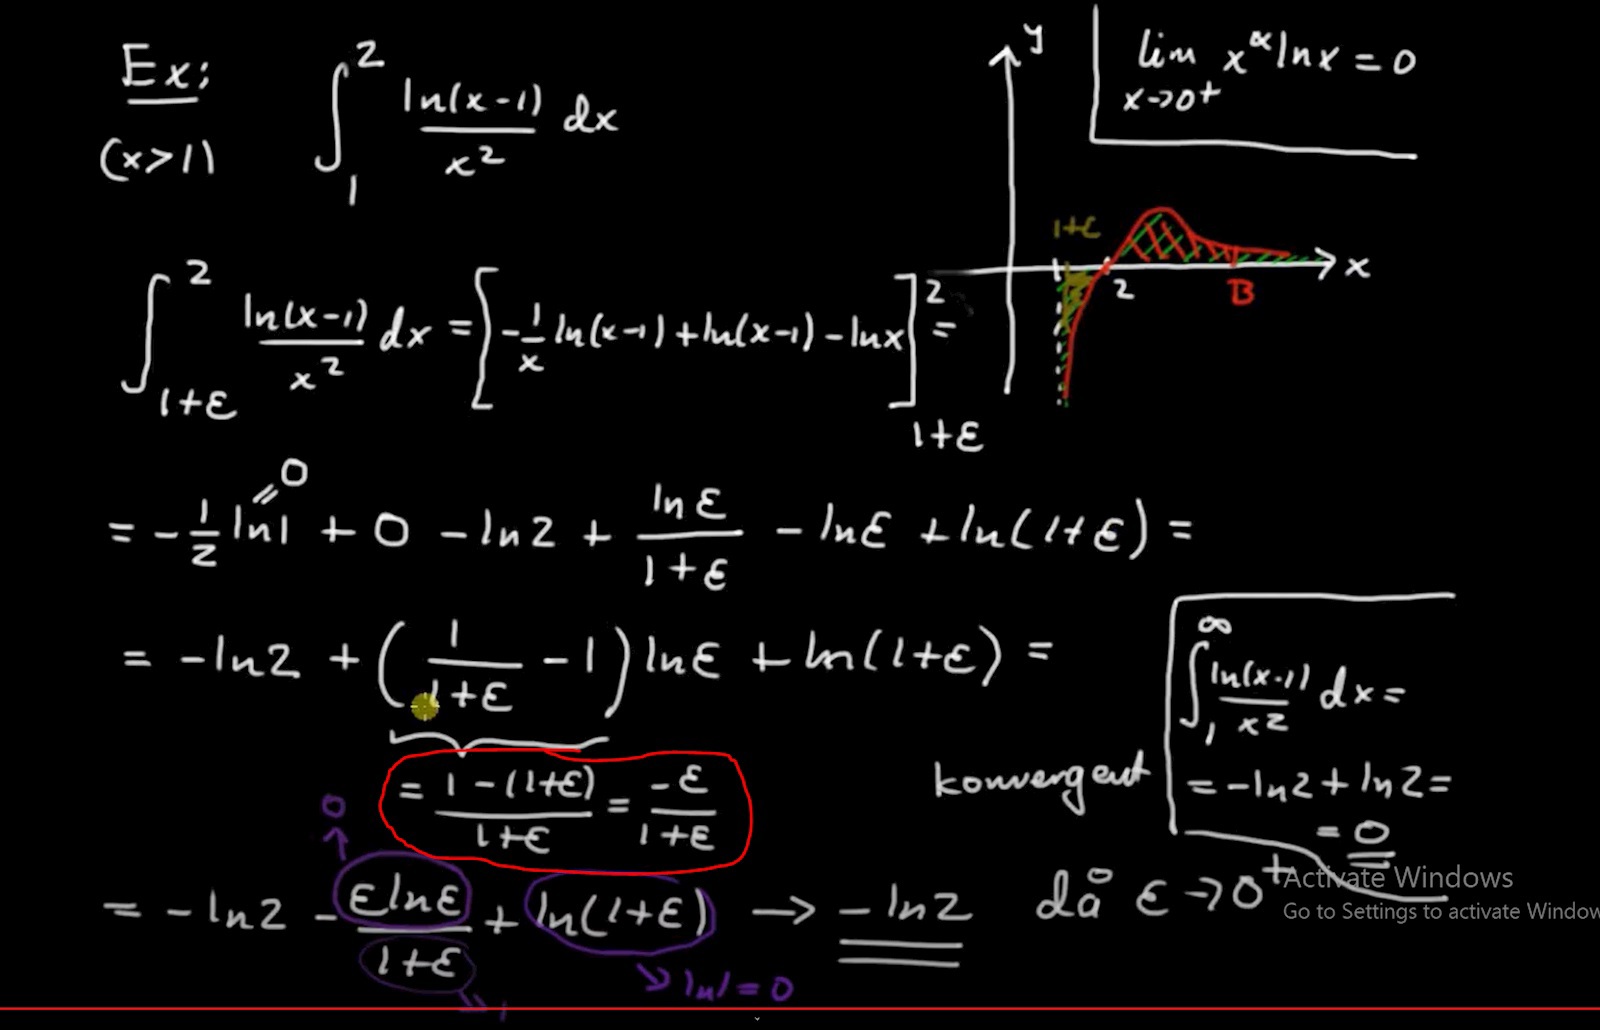 Ex: ∫₁² ln(x-1)/x² dx
(x>1)
y
lim x→0+ x^α ln x = 0
1+ε
2
B
x
∫_{1+ε}^{2} ln(x-1)/x² dx = [-1/x ln(x-1) + ln(x-1) - ln x]_{1+ε}^{2} =
= -1/2 ln1 + 0 - ln2 + lnε/(1+ε) - lnε + ln(1+ε) =
= 0
= -ln2 + (1/(1+ε) - 1) lnε + ln(1+ε) =
= (1-(1+ε))/(1+ε) = -ε/(1+ε)
konvergent
∫₁^∞ ln(x-1)/x² dx =
= -ln2 + ln2 =
= 0
0
= -ln2 - εlnε/(1+ε) + ln(1+ε) → -ln2 då ε→0+
→ 1
→ ln1 = 0
Activate Windows
Go to Settings to activate Window